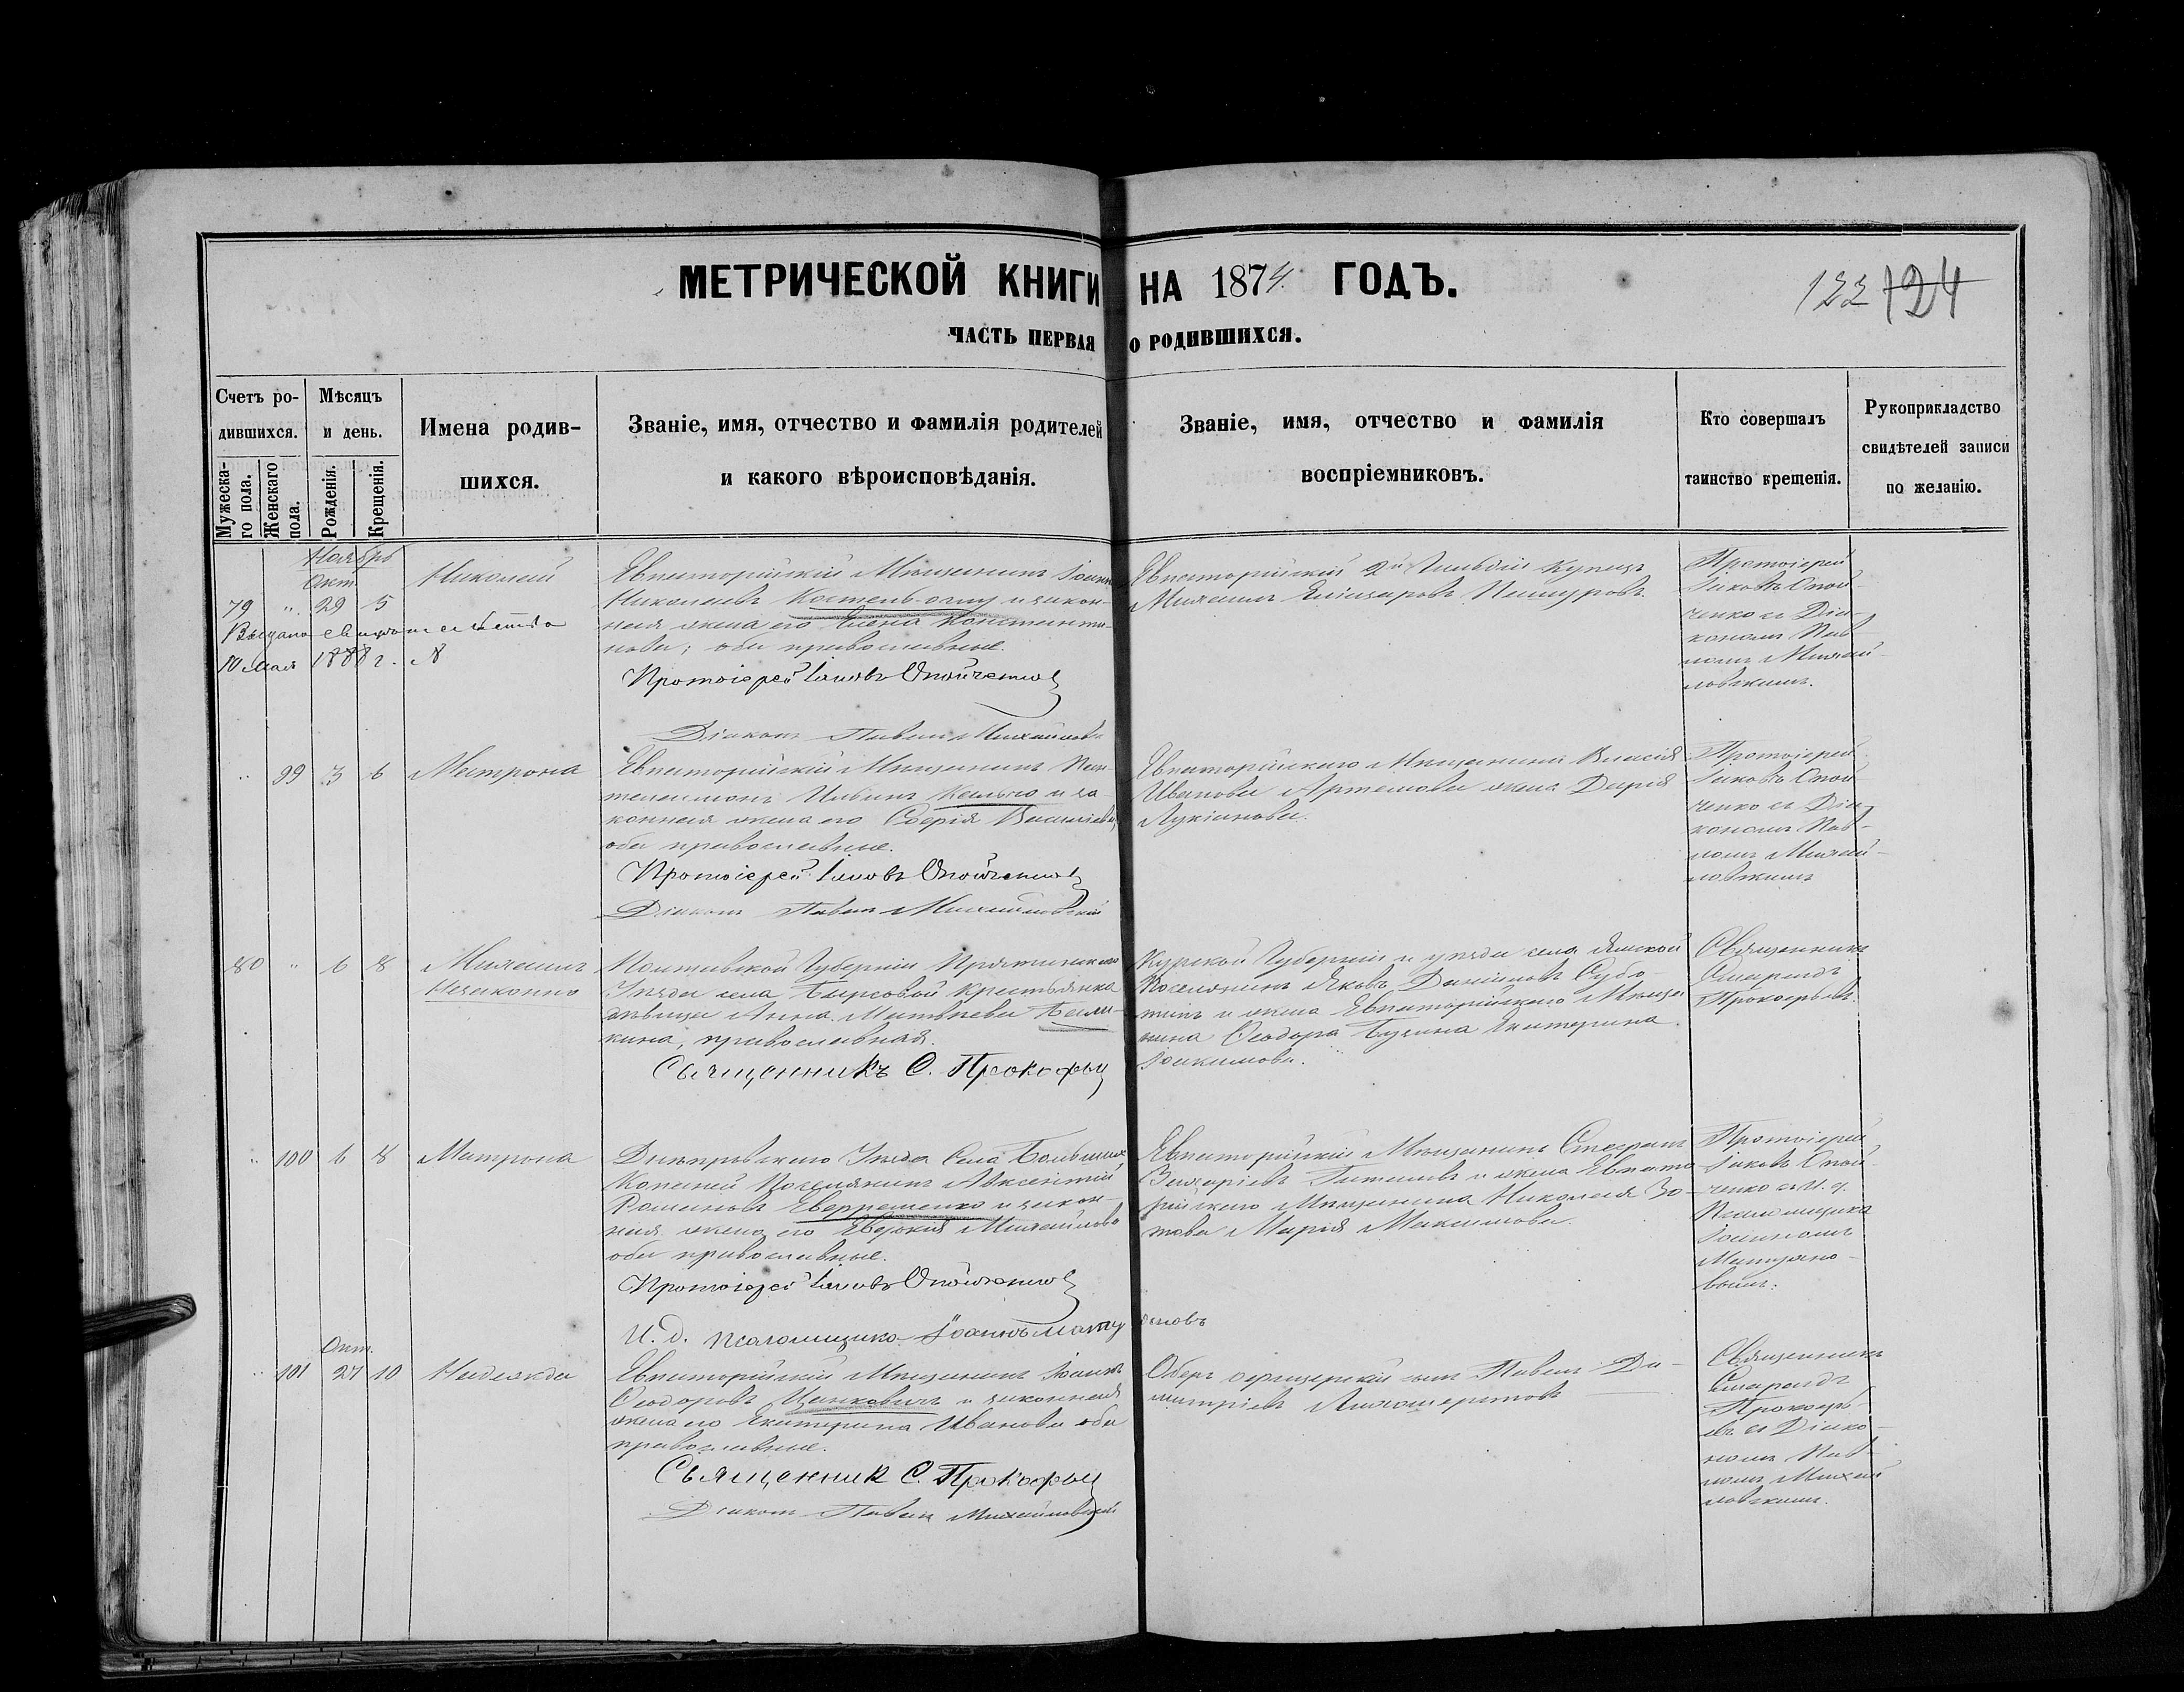 МЕТРИЧЕСКОЙ КНИГИ НА 1874 ГОДЪ.
122 124
ЧАСТЬ ПЕРВАЯ О РОДИВШИХСЯ.
Счетъ родившихся.
Мужескаго пола.
Женскаго пола.
Мѣсяцъ и день.
Рожденія.
Крещенія.
Имена родившихся.
Званіе, имя, отчество и фамилія родителей
и какого вѣроисповѣданія.
Званіе, имя, отчество и фамилія
воспріемниковъ.
Кто совершалъ
таинство крещенія.
Рукоприкладство
свидѣтелей записи
по желанію.
Ноябрь
Окт.
79 " 29 5
Николай
Выдано свидетельство
10 мая 1888 г. №
Евпаторійскій Мѣщанинъ Іоаннъ
Николаевъ и закон-
ная жена его Елена Константи-
нова; оба православные.
Протоіерей Іаковъ Опойченко
Діаконъ Павелъ Михайловскій
Евпаторійскій 2й Гильдіи купецъ
Михаилъ
Протоіерей
Іаковъ Опой-
ченко съ Діа-
кономъ Пав-
ломъ Михай-
ловскимъ.
" 99 3 6
Матрона
Евпаторійскій Мѣщанинъ Пан-
телеимонъ и за
конная жена его Васильева,
оба православные.
Протоіерей Іаковъ Опойченко
Діаконъ Павелъ Михайловскій
Евпаторійскаго Мѣщанина Власія
Иванова Артемова жена Дарія
Лукіанова.
Протоіерей
Іаковъ Опой-
ченко съ Діа-
кономъ Пав-
ломъ Михай-
ловскимъ
80 " 6 8
Михаилъ
Незаконно
Полтавской Губерніи Прятинскаго
Уѣзда села крестьянка
дѣвица Анна Матвѣева Бали-
кина, православная.
Священникъ С. Прокофьев
Курской Губерніи и уѣзда села Ямской
Поселянинъ Яковъ Даниловъ Субо-
тинъ и жена Евпаторійскаго Мѣща
нина Ѳеодора Бузина Екатерина
Іоакимова.
Священникъ
Смарагдъ
Прокофьевъ.
" 100 6 8
Матрона
Днѣпровскаго Уѣзда Села Большихъ
Копаней Поселянинъ Авксентій
Романовъ и закон-
ная жена его Евдокія Михайлова
оба православные.
Протоіерей Іаковъ Опойченко
И. д. псаломщика Іоаннъ
Евпаторійскій Мѣщанинъ Стефанъ
Захаріевъ и жена Евпато-
рійскаго Мѣщанина Николая Зо-
това Марія Максимова.
Протоіерей
Іаковъ Опой-
ченко съ И. д.
Псаломщика
Іоанномъ
Окт.
" 101 27 10
Надежда
Евпаторійскій Мѣщанинъ Іоаннъ
Ѳеодоровъ Цанковичъ и законная
жена его Екатерина Иванова оба
православные.
Священник С. Прокофьев
Діаконъ Павелъ Михайловскій
Оберъ офицерскій сынъ Павелъ Ди-
митріевъ
Священникъ
Смарагдъ
Прокофь-
евъ съ Діако-
номъ Пав-
ломъ Михай
ловскимъ.